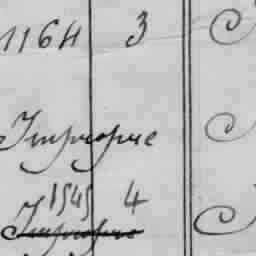 1164 3
Impropre
1545 4
Impropre